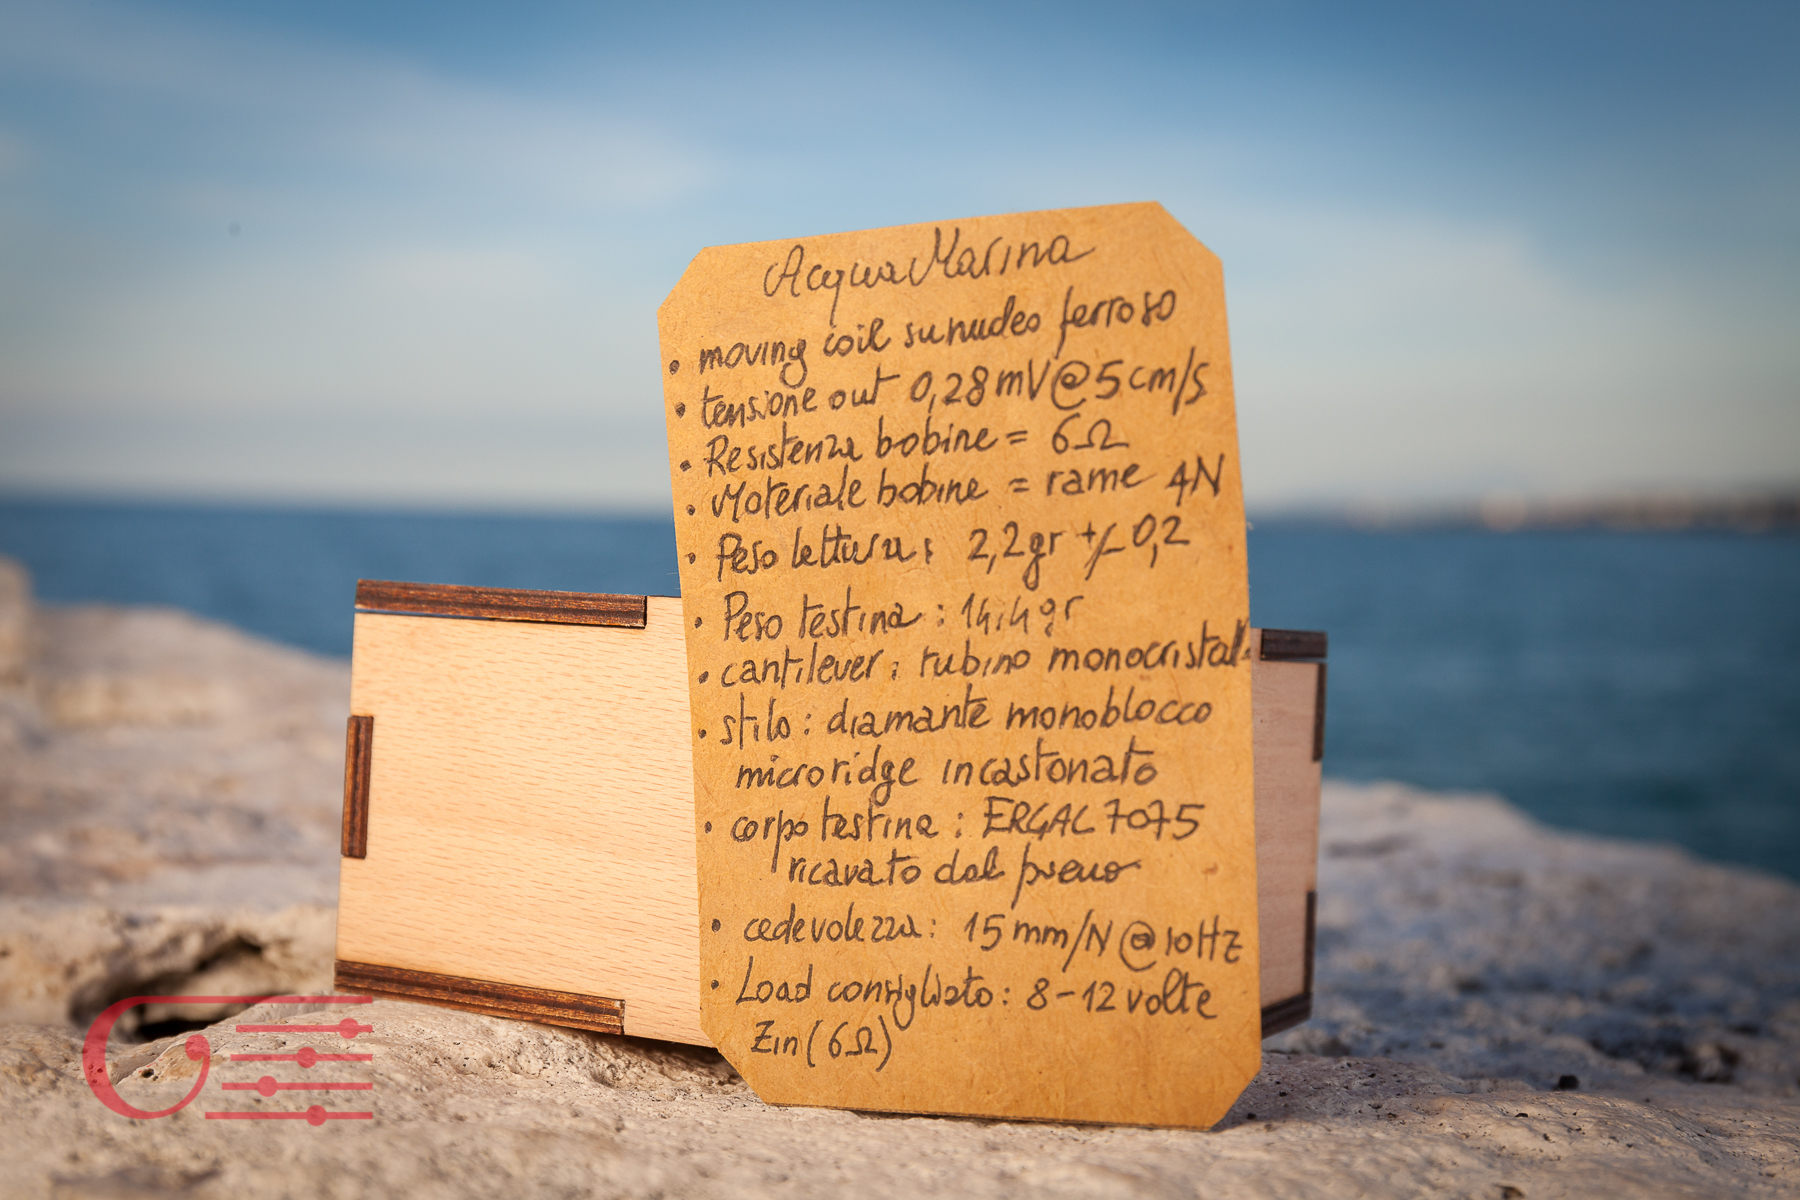 AcquaMarina
• moving coil su nucleo ferroso
• tensione out 0,28 mV @ 5 cm/s
• Resistenza bobine = 6Ω
• Materiale bobine = rame 4N
• Peso lettura: 2,2 gr +/- 0,2
• Peso testina: 14,4 gr
• cantilever: rubino monocristall.
• stilo: diamante monoblocco
microridge incastonato
• corpo testina: ERGAL 7075
ricavato dal pieno
• cedevolezza: 15 mm/N @ 10Hz
• Load consigliato: 8-12 volte
Zin (6Ω)